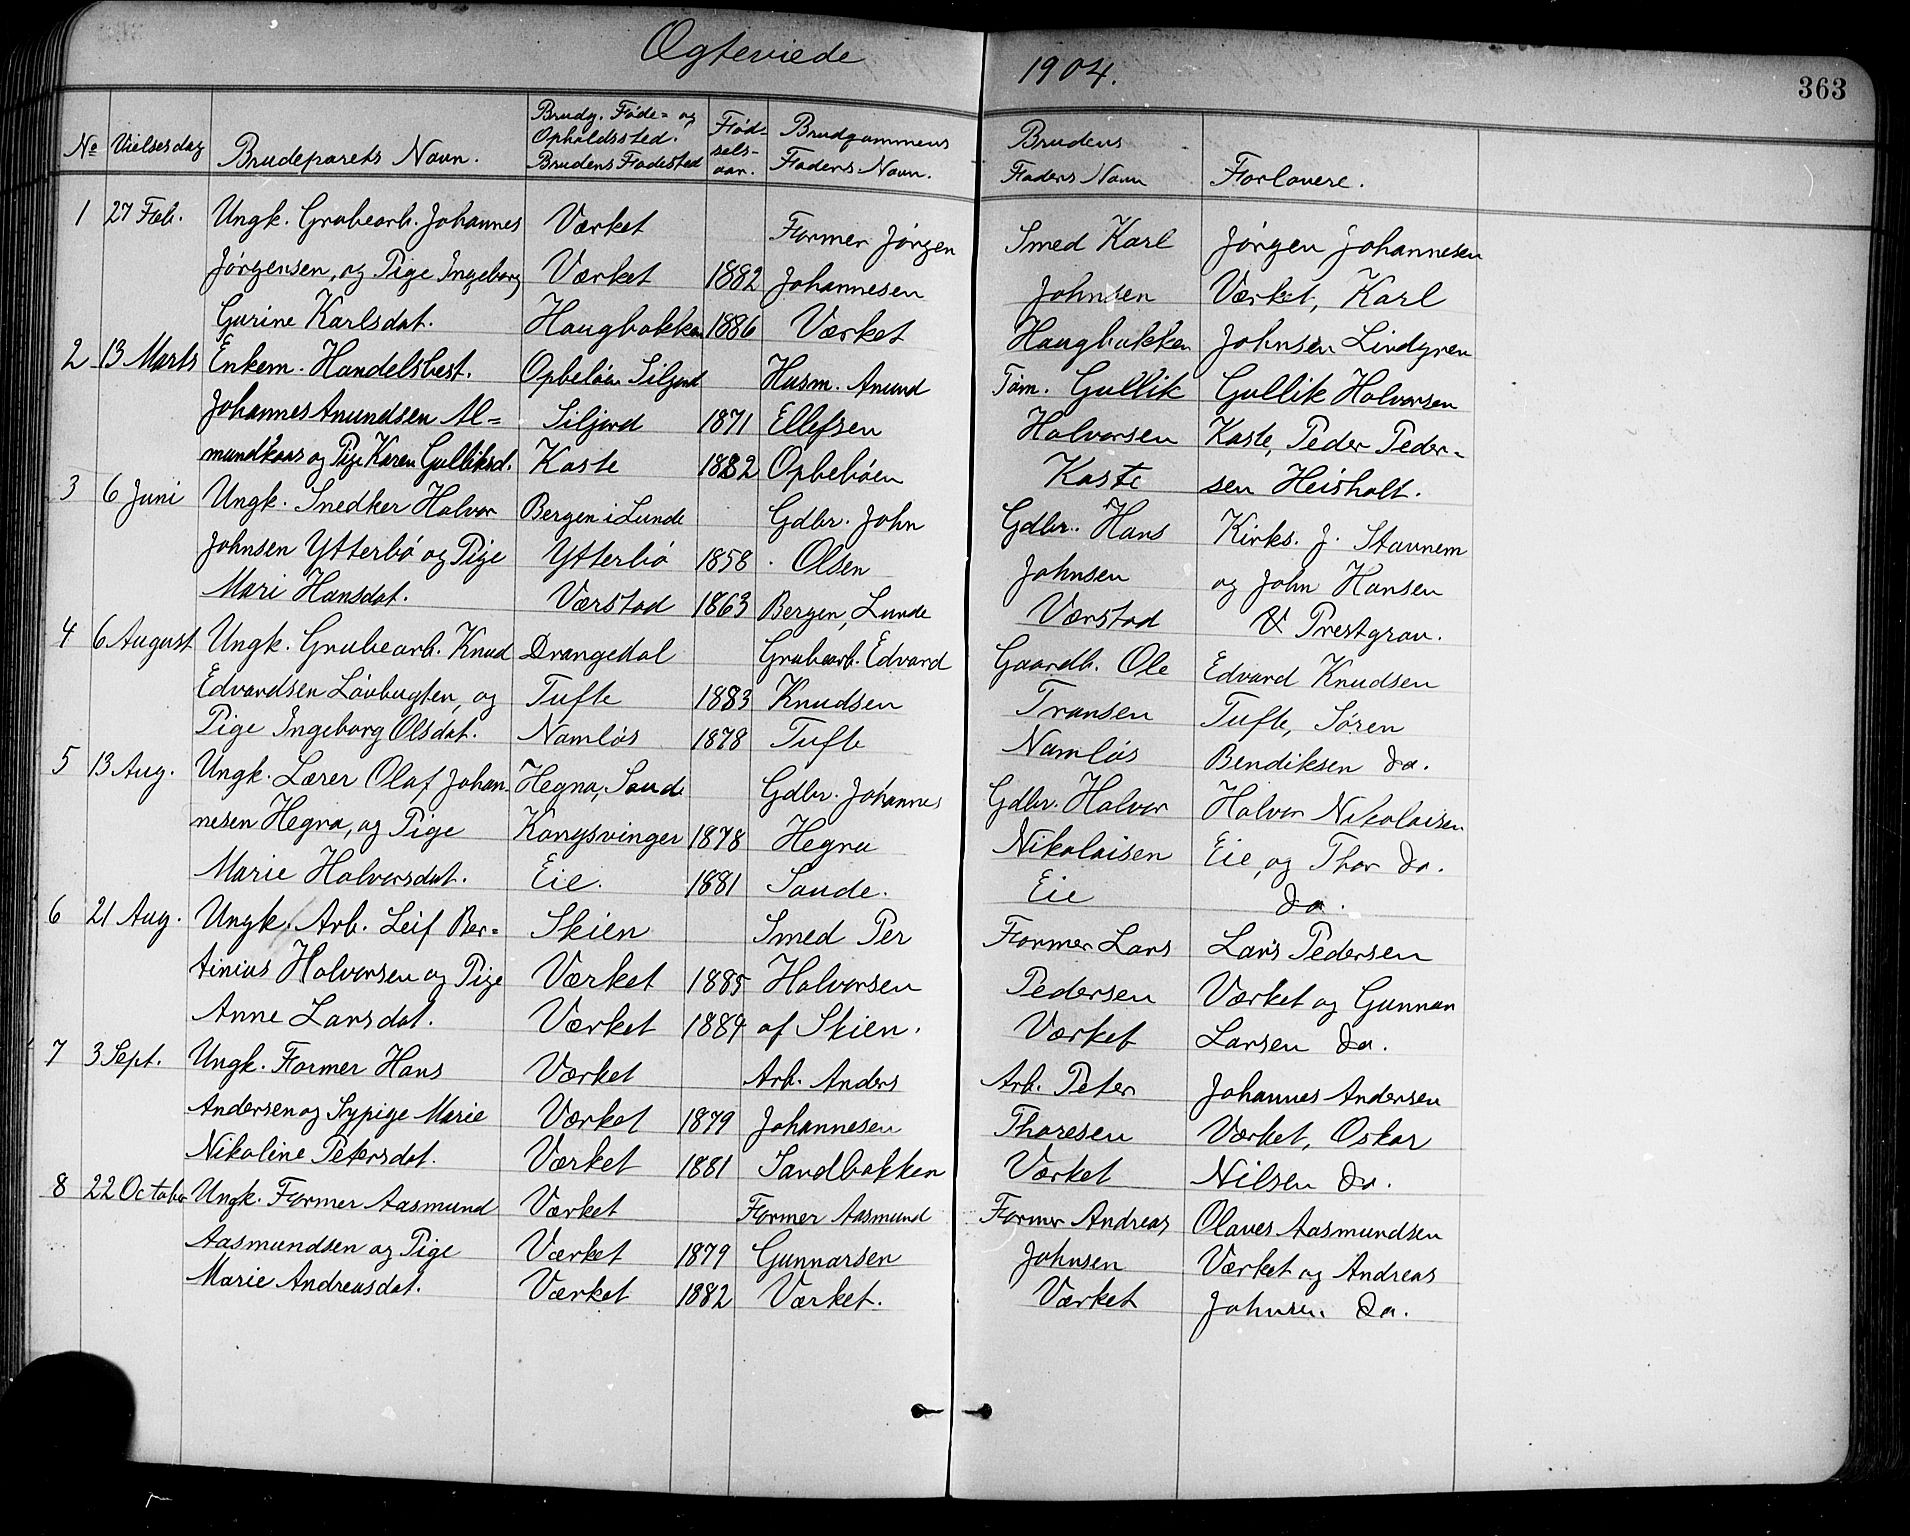 Ægteviede 1904. 363
Nº Vielsesdag Brudeparets Navn. Brudg. Føde- og Opholdssted. Brudens Fødested Fødselsaar. Brudgommens Faders Navn. Brudens Faders Navn Forlovere.
1 27 Feb. Ungk. Grubearb. Johannes Værket Former Jørgen Smed Karl Jørgen Johannesen
Jørgensen, og Pige Ingeborg Værket 1882 Johannesen Johnsen Værket, Karl
Gurine Karlsdat. Haugbakken 1886 Værket Haugbakken Johnsen Lindgren
2 13 Marts Enkem. Handelsbest. Opbeløen Siljord Husm. Anund Tøm. Gullik Gullik Halvorsen
Johannes Anundsen Al= Siljord 1871 Ellefsen Halvorsen Kaste, Peder Peder-
mundkaas og Pige Karen Gulliksd. Kaste 1882 Opbebøen Kaste sen Heisholt.
3 6 Juni Ungk. Snedker Halvor Bergen i Lunde Gdbr. John Gdbr. Hans Kirks. J. Stavnem
Johnsen Ytterbø og Pige Ytterbø 1858 Olsen Johnsen og John Hansen
Mari Hansdat. Værstad 1863 Bergen, Lunde Værstad Prestgrav.
4 6 August Ungk. Grubearb. Knud Drangedal Grubearb. Edvard Gaardb. Ole Edvard Knudsen
Edvardsen Løvbugten, og Tufte 1883 Knudsen Transen Tufte, Søren
Pige Ingeborg Olsdat. Namløs 1878 Tufte Namløs Bendiksen do.
5 13 Aug. Ungk. Lærer Olaf Johan- Hegna, Saude Gdbr. Johannes Gdbr. Halvor Halvor Nikolaisen
nesen Hegna, og Pige Kongsvinger 1878 Hegna Nikolaisen Eie, og Thor do.
Marie Halvorsdat. Eie. 1881 Saude. Eie do.
6 21 Aug. Ungk. Arb. Leif Ber= Skien Smed Per Former Lars Lars Pedersen
tinius Halvorsen og Pige Værket 1885 Halvorsen Pedersen Værket og Gunnar
Anne Larsdat. Værket 1884 af Skien. Værket Larsen do.
7 3 Sept. Ungk. Former Hans Værket Arb. Anders Arb. Peter Johannes Andersen
Andersen og Sypige Marie Værket 1879 Johannesen Thoresen Værket, Oskar
Nikoline Petersdat. Værket 1881 Sandbakken Værket Nilsen do.
8 22 October Ungk. Former Aasmund Værket Former Aasmund Former Andreas Olaves Aasmundsen
Aasmundsen og Pige Værket 1879 Gunnarsen Johnsen Værket og Andreas
Marie Andreasdat. Værket 1882 Værket. Værket Johnsen do.